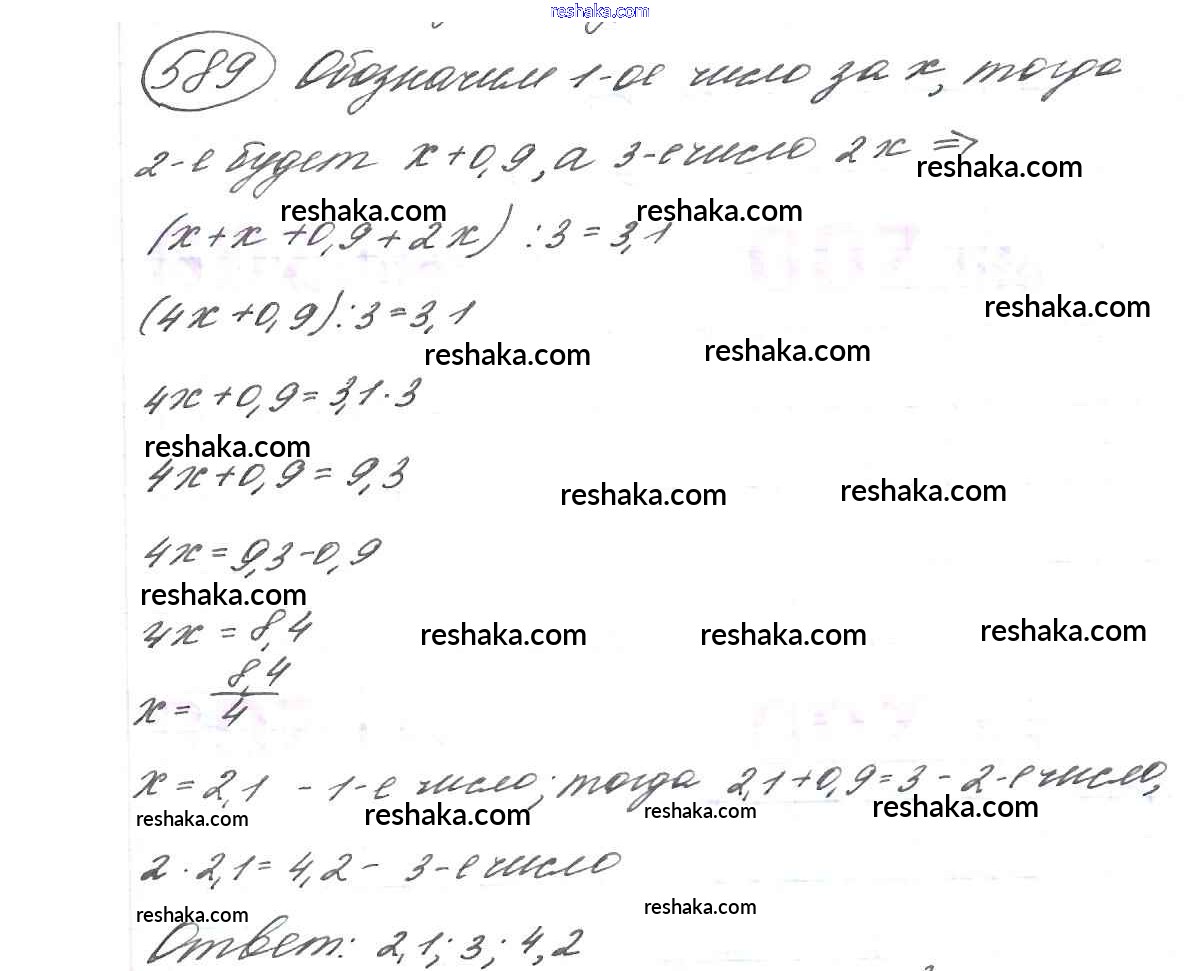 reshaka.com
589 Обозначим 1-ое число за x, тогда
2-е будет x+0,9, а 3-е число 2x ⇒
reshaka.com
reshaka.com reshaka.com
(x+x+0,9+2x):3=3,1
reshaka.com
(4x+0,9):3=3,1
reshaka.com reshaka.com
4x+0,9=3,1·3
reshaka.com
4x+0,9=9,3
reshaka.com reshaka.com
4x=9,3-0,9
reshaka.com
4x=8,4
reshaka.com reshaka.com reshaka.com
x=8,4/4
x=2,1 - 1-е число; тогда 2,1+0,9=3 - 2-е число,
reshaka.com reshaka.com reshaka.com reshaka.com
2·2,1=4,2 - 3-е число
reshaka.com reshaka.com
Ответ: 2,1; 3; 4,2